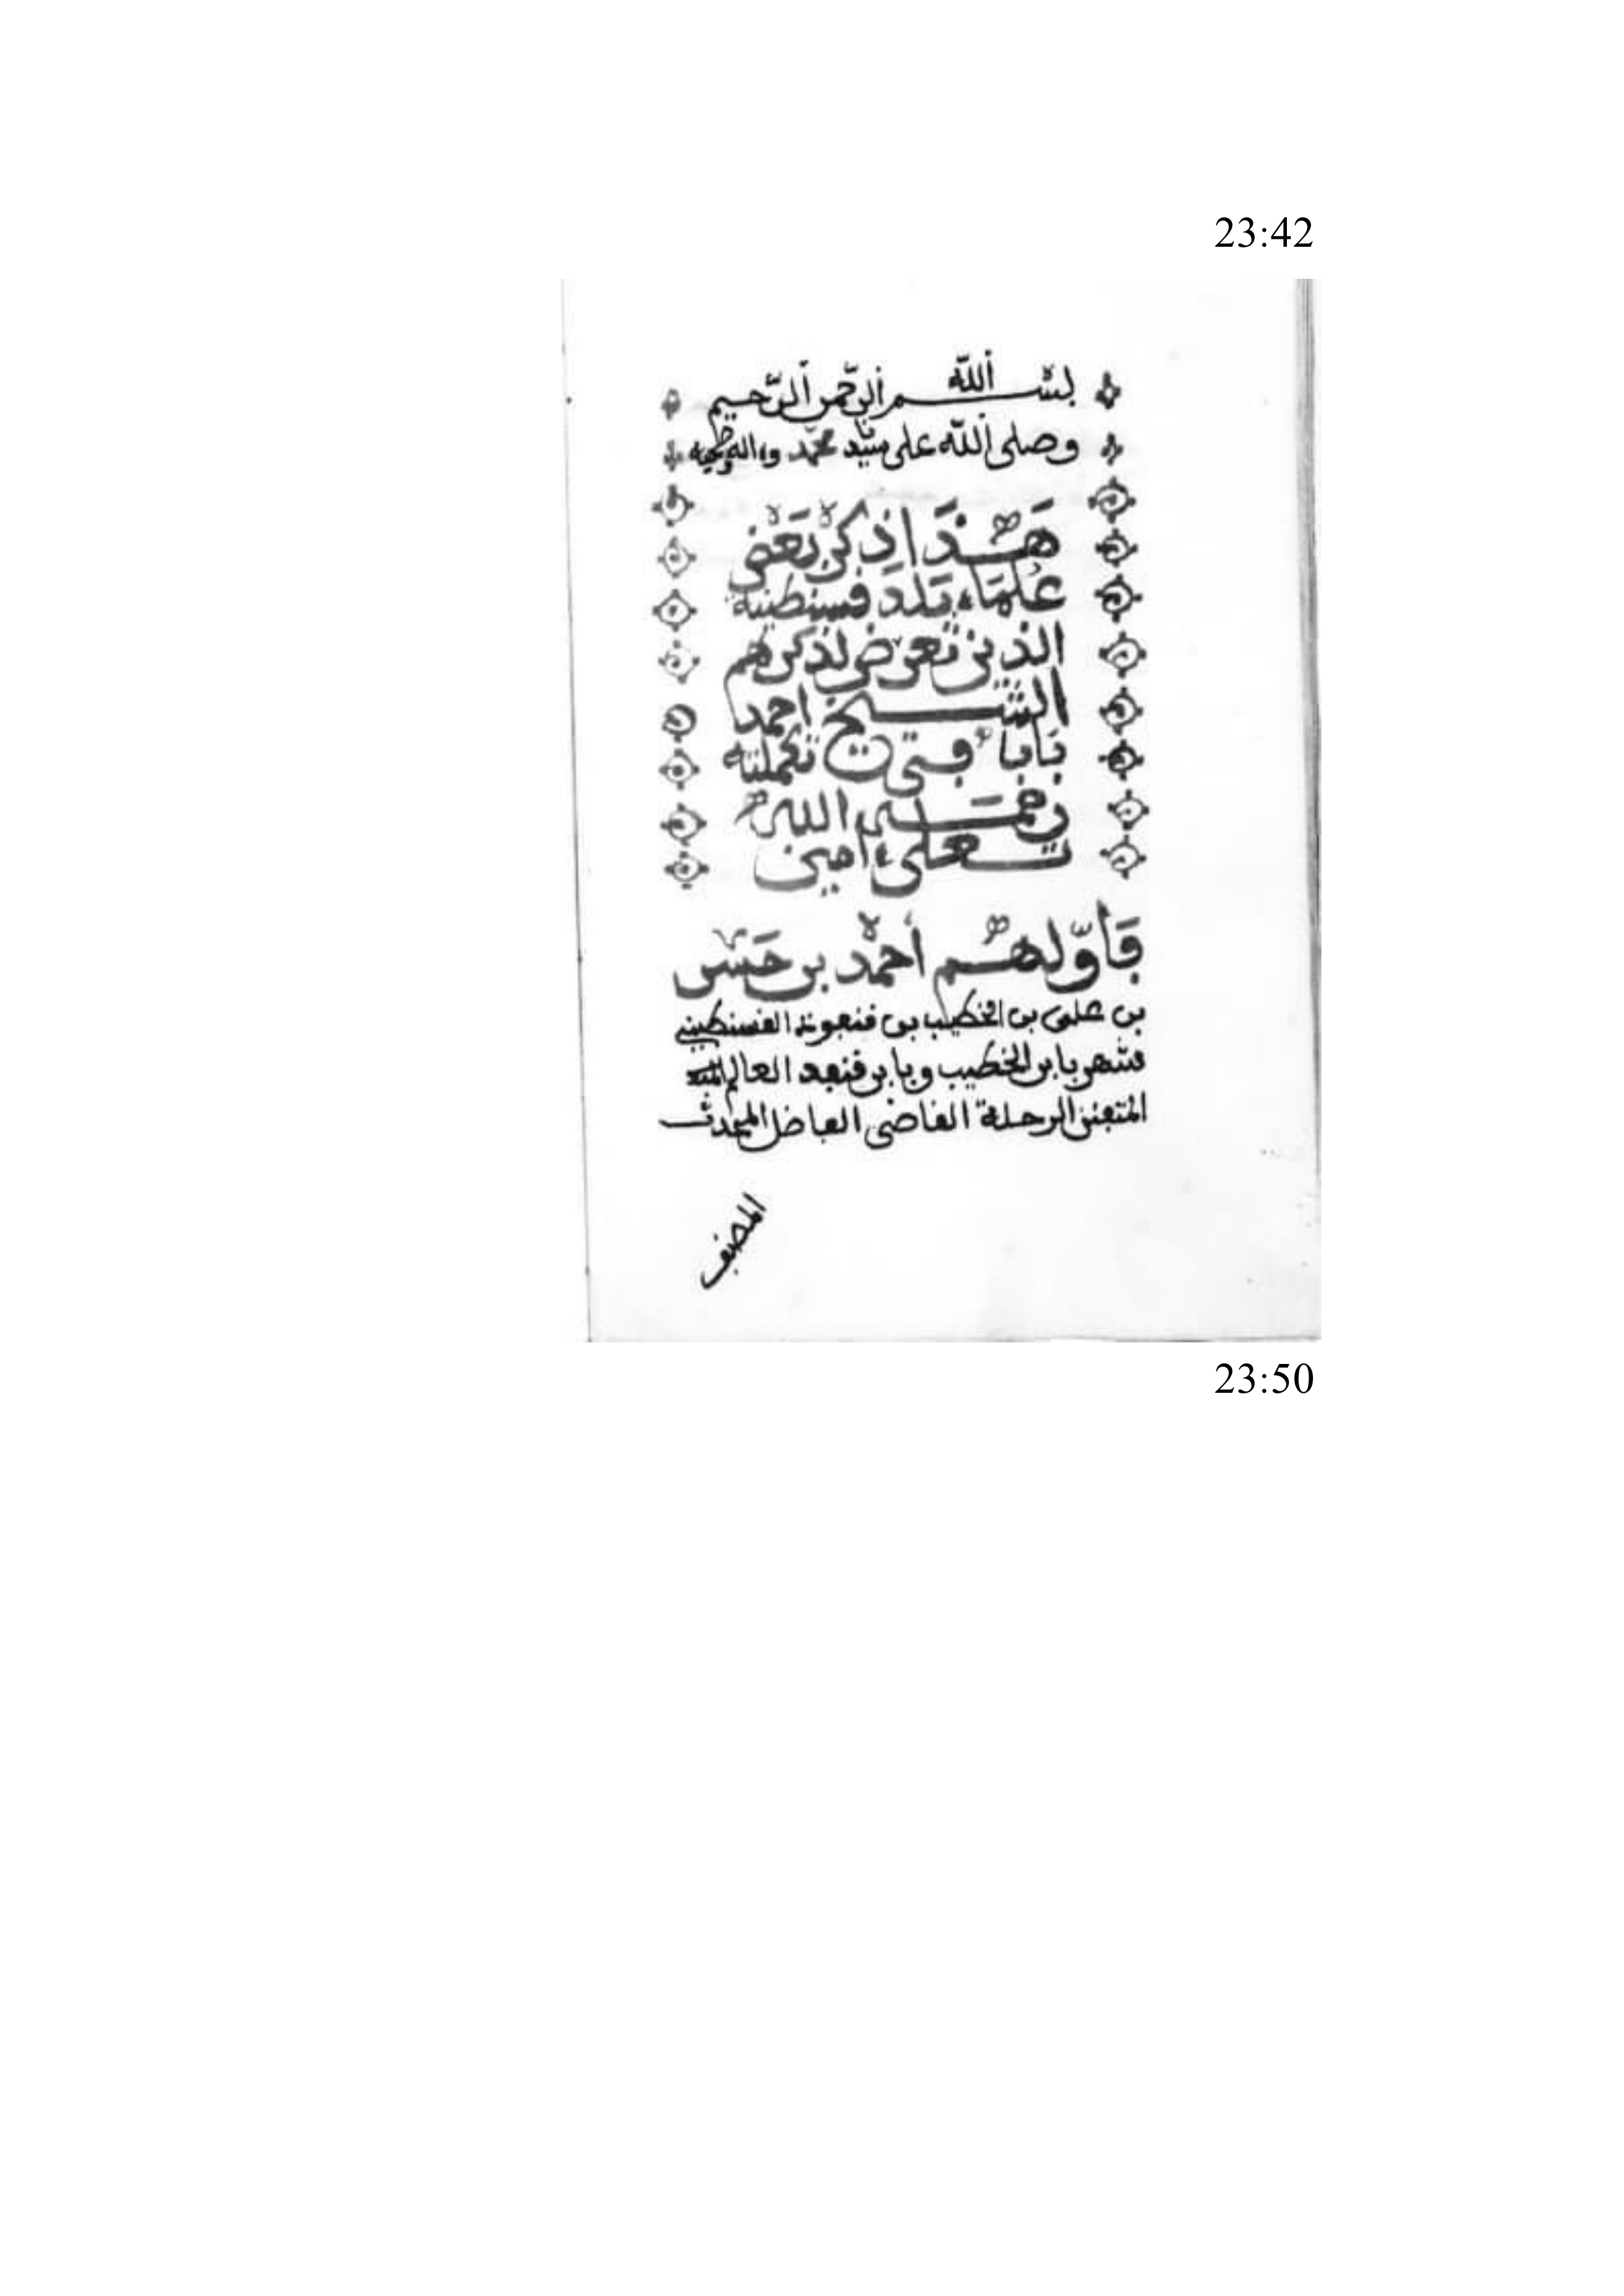 23:42
بسم الله الرحمن الرحيم
وصلى الله على سيدنا محمد وءاله وصحبه
هذا ذكر بعض
علماء بلد قسنطينة
الذين تعرض لذكرهم
الشيخ احمد
بابا في تكملته
رحمه الله
تعلى ءامين
فأولهم أحمد بن حسن
بن على بن الخطيب بن فنفونة القسنطيني
شهر بابن الخطيب وبابن قنفد العالم
المتفنن الرحلة القاضى الفاضل المحدث
المصنف
23:50